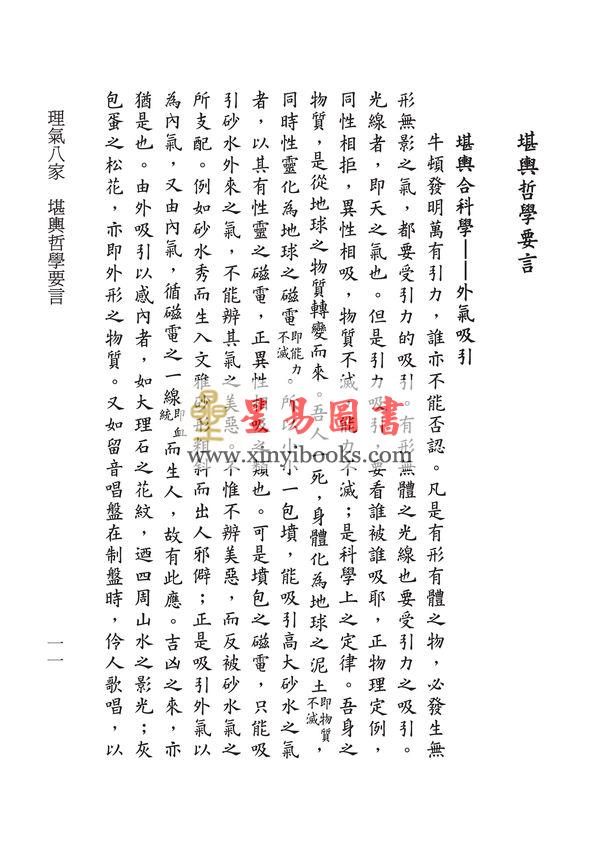 堪輿哲學要言
堪輿合科學——外氣吸引
牛頓發明萬有引力，誰亦不能否認。凡是有形有體之物，必發生無
形無影之氣，都要受引力的吸引。有形無體之光線也要受引力之吸引。
光線者，即天之氣也。但是引力吸引，要看誰被誰吸耶，正物理定例，
同性相拒，異性相吸，物質不滅，能力不滅；是科學上之定律。吾身之
物質，是從地球之物質轉變而來。吾人一死，身體化為地球之泥土即物質，不滅，
同時性靈化為地球之磁電即能力不滅。所以小小一包墳，能吸引高大砂水之氣
者，以其有性靈之磁電，正異性相吸之類也。可是墳包之磁電，只能吸
引砂水外來之氣，不能辨其氣之美惡。不惟不辨美惡，而反被砂水氣之
所支配。例如砂水秀而生人文雅砂形粗斜而出人邪僻；正是吸引外氣以
為內氣，又由內氣，循磁電之一線即血統而生人，故有此應。吉凶之來，亦
猶是也。由外吸引以感內者，如大理石之花紋，迺四周山水之影光；灰
包蛋之松花，亦即外形之物質。又如留音唱盤在制盤時，伶人歌唱，以
理氣八家 堪輿哲學要言
一一
星易圖書
www.xinyibooks.com